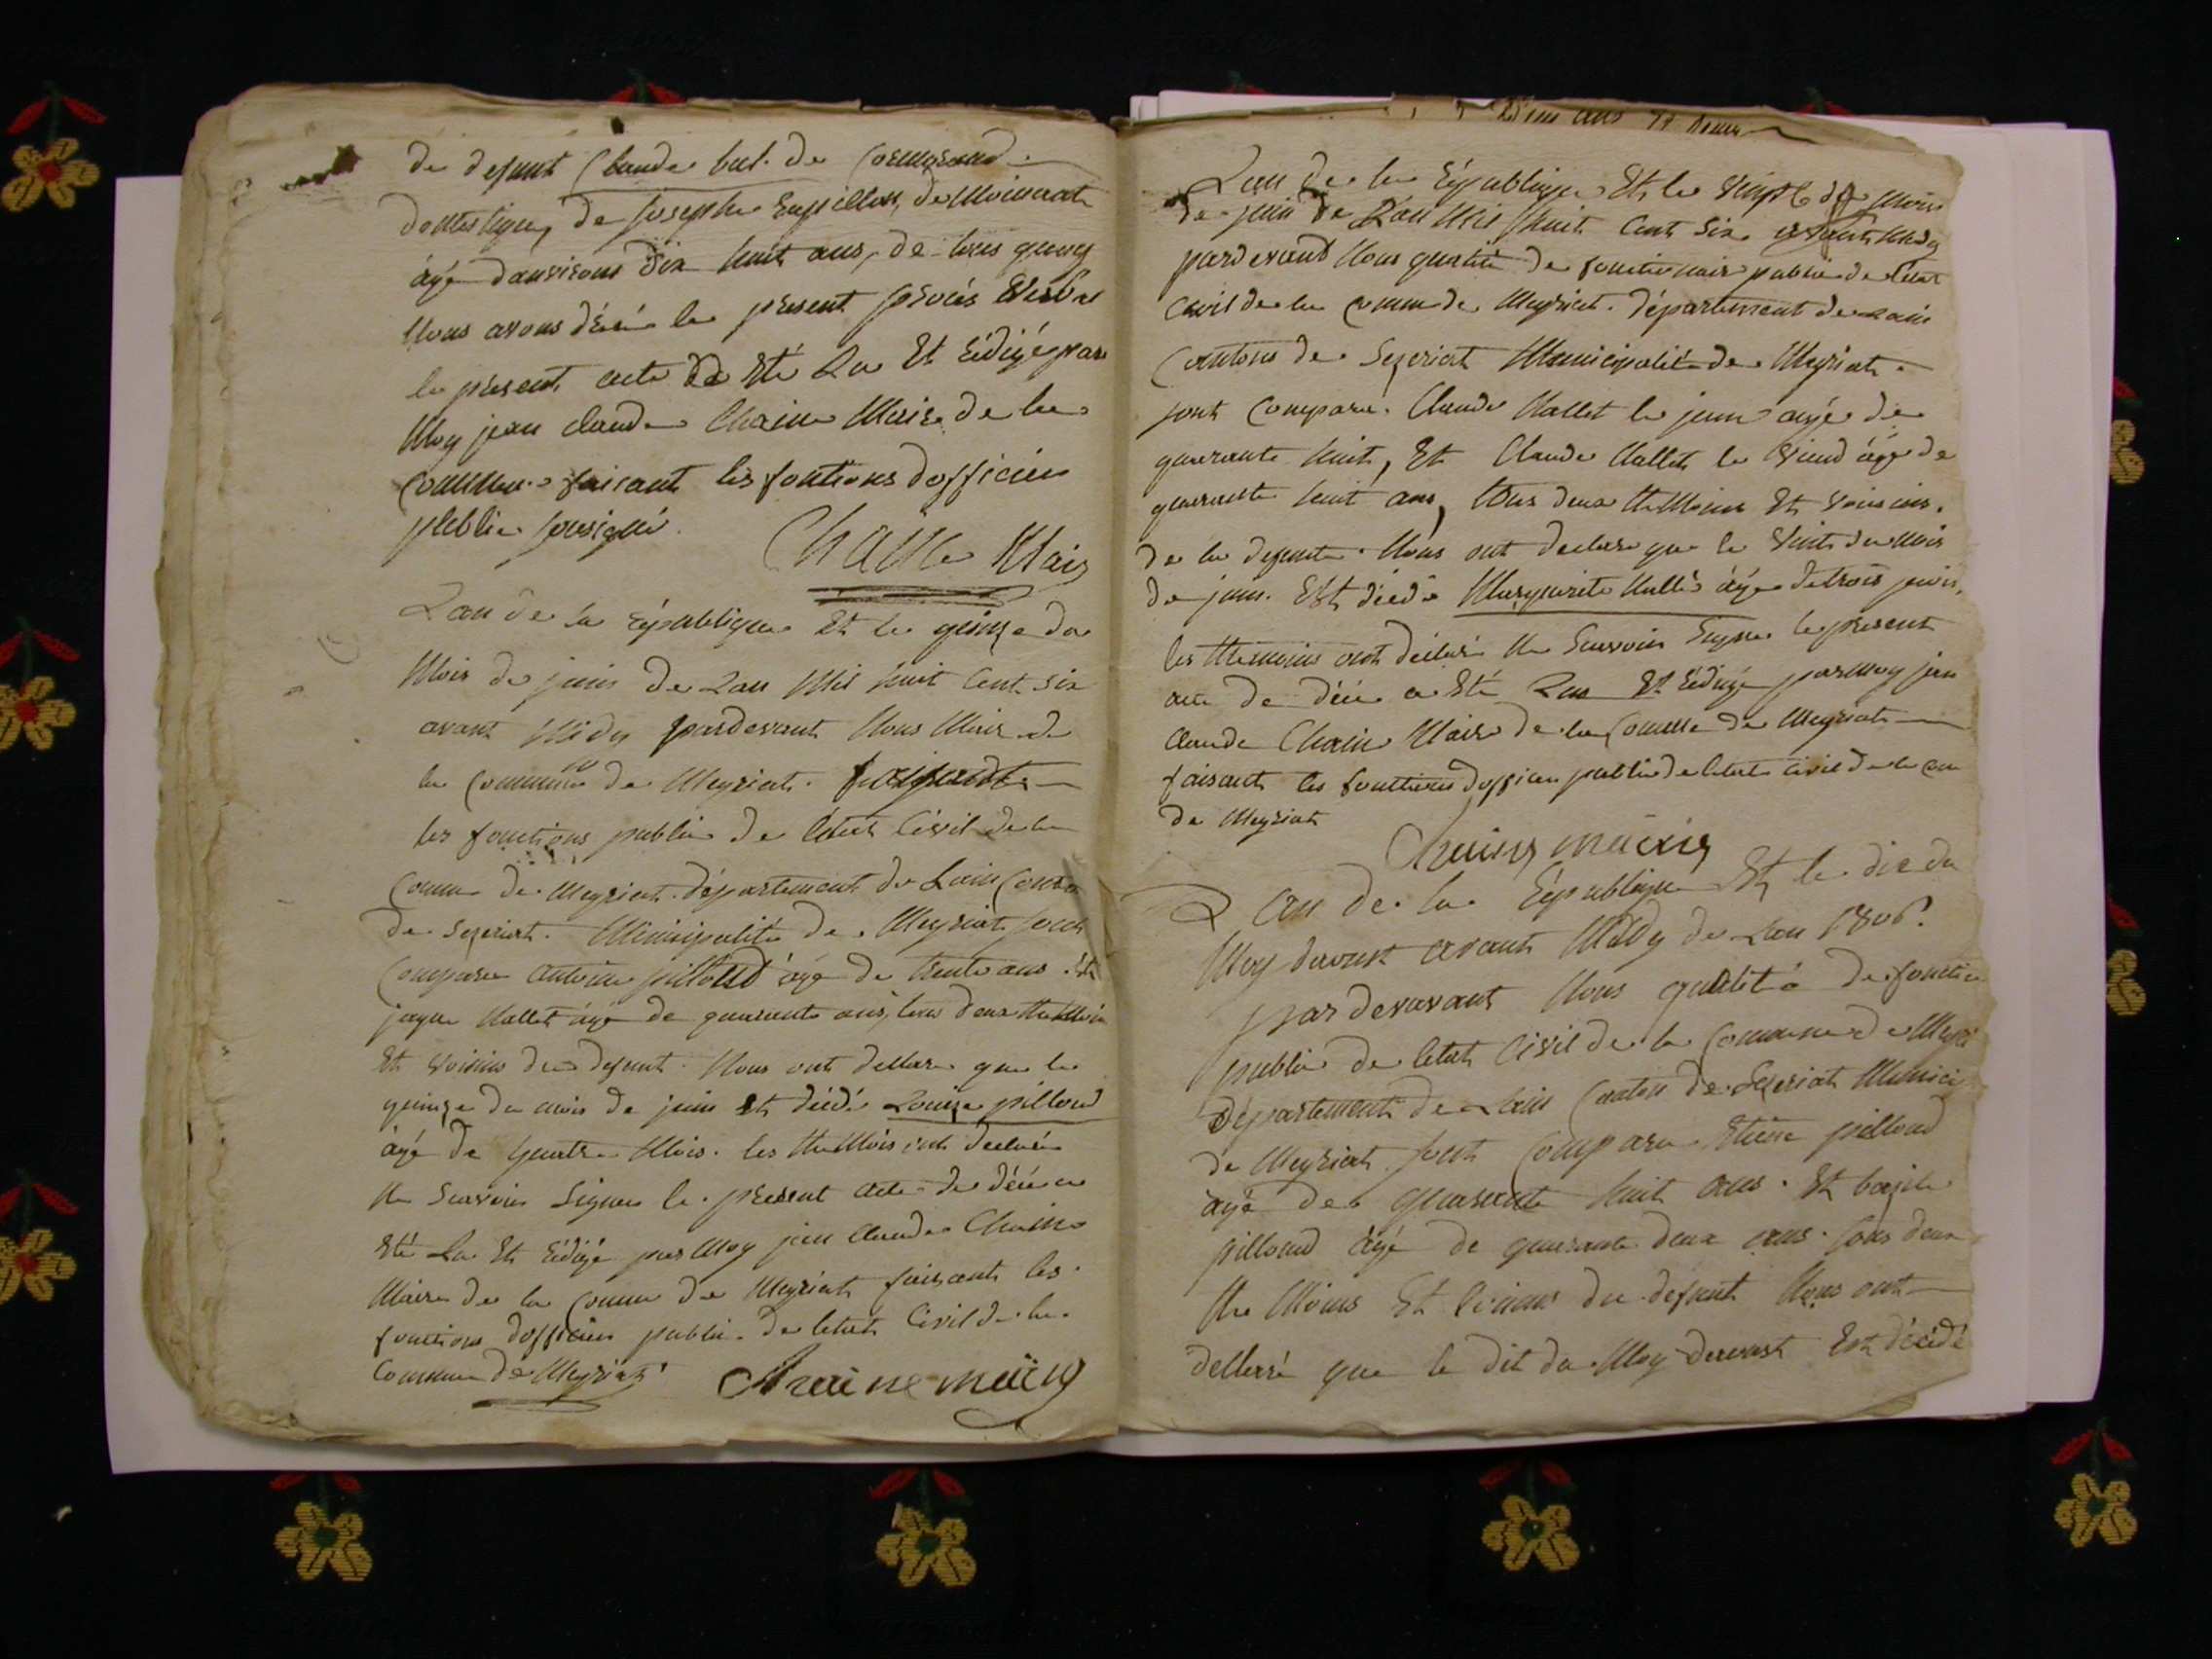 de defunt Claude bul. de
domestique, de Joseph
âgé danvirons dix huit ans, de tous quoy
Nous avons dréssé le présent procés verbal
le présent acte de Eté Lu Et rédigé par
Moy jean claude Chaine Maire de la
Commune faisant les fontions dofficier
publie sousigné.
Chaine Maire
Lan de la république Et le quinze du
Mois de juin de Lan Mil huit Cent six
avant Midy pardevant Nous Maire de
la Commune de Meyriat. faisant
les fonctions public de létat Civil de la
Comune de Meyriat. département de Lain Canton
de Seseriat. Municipalité de Meyriat sont
Comparu antoine pilloud âgé de trente ans. Et
jaque Nallet âgé de quarante ans, tous deux themoin
Et voisins du defunt. Nous ont dellare que le
quinze du mois de juin Et décédé Louise pilloud
âgé de quatre Mois. les themois ont declaré
ne scavoir signer le présent acte de décé a
Eté Lu Et rédigé par Moy jean Claude Chaine
Maire de la Comune de Meyriat faisant les
fonctions dofficier public de letat Civil de la
Commune de Meyriat
Chaine maire
ans
Lan de la république Et le vingt du mois
de juin de Lan Mil huit Cent six avant Midy
pardevant Nous qualité de fonctionair public de létat
Civil de la Comune de Meyriat. département de Lain
Cantons de Seseriat Municipalité de Meyriat.
sont Comparu. Claude Nallet le jeune âgé de
quarante huit, Et Claude Nallet le âgé de
quarante huit ans, tous deux themoins Et voisins.
de la defunte. Nous ont declare que le vint du mois
de juin. Est décédé Marguerite Nallé âgé de trois jours,
les themoins ont déclaré ne scavoir signer le présent
acte de décé a Eté Lu Et rédigé par Moy jean
Claude Chaine Maire de la Comune de Meyriat
faisant les fonttions dofficier public de letat Civil de la com
de Meyriat
Chaine maire
Lan de la république Et le dix du
Moy davoust avant Midy de Lan 1806.
par devavant Nous qualité de fonction
public de letat Civil de la Commune de Meyri
département de Lain Canton de Seseriat Munici
de Meyriat sont Comparu Etiene pilloud
âgé de quarante huit ans. Et batiste
pilloud âgé de quarante deux ans. tous deux
the Moins Et voisins du defunt Nous ont
dellaré que le dit du Moy davoust Est décédé